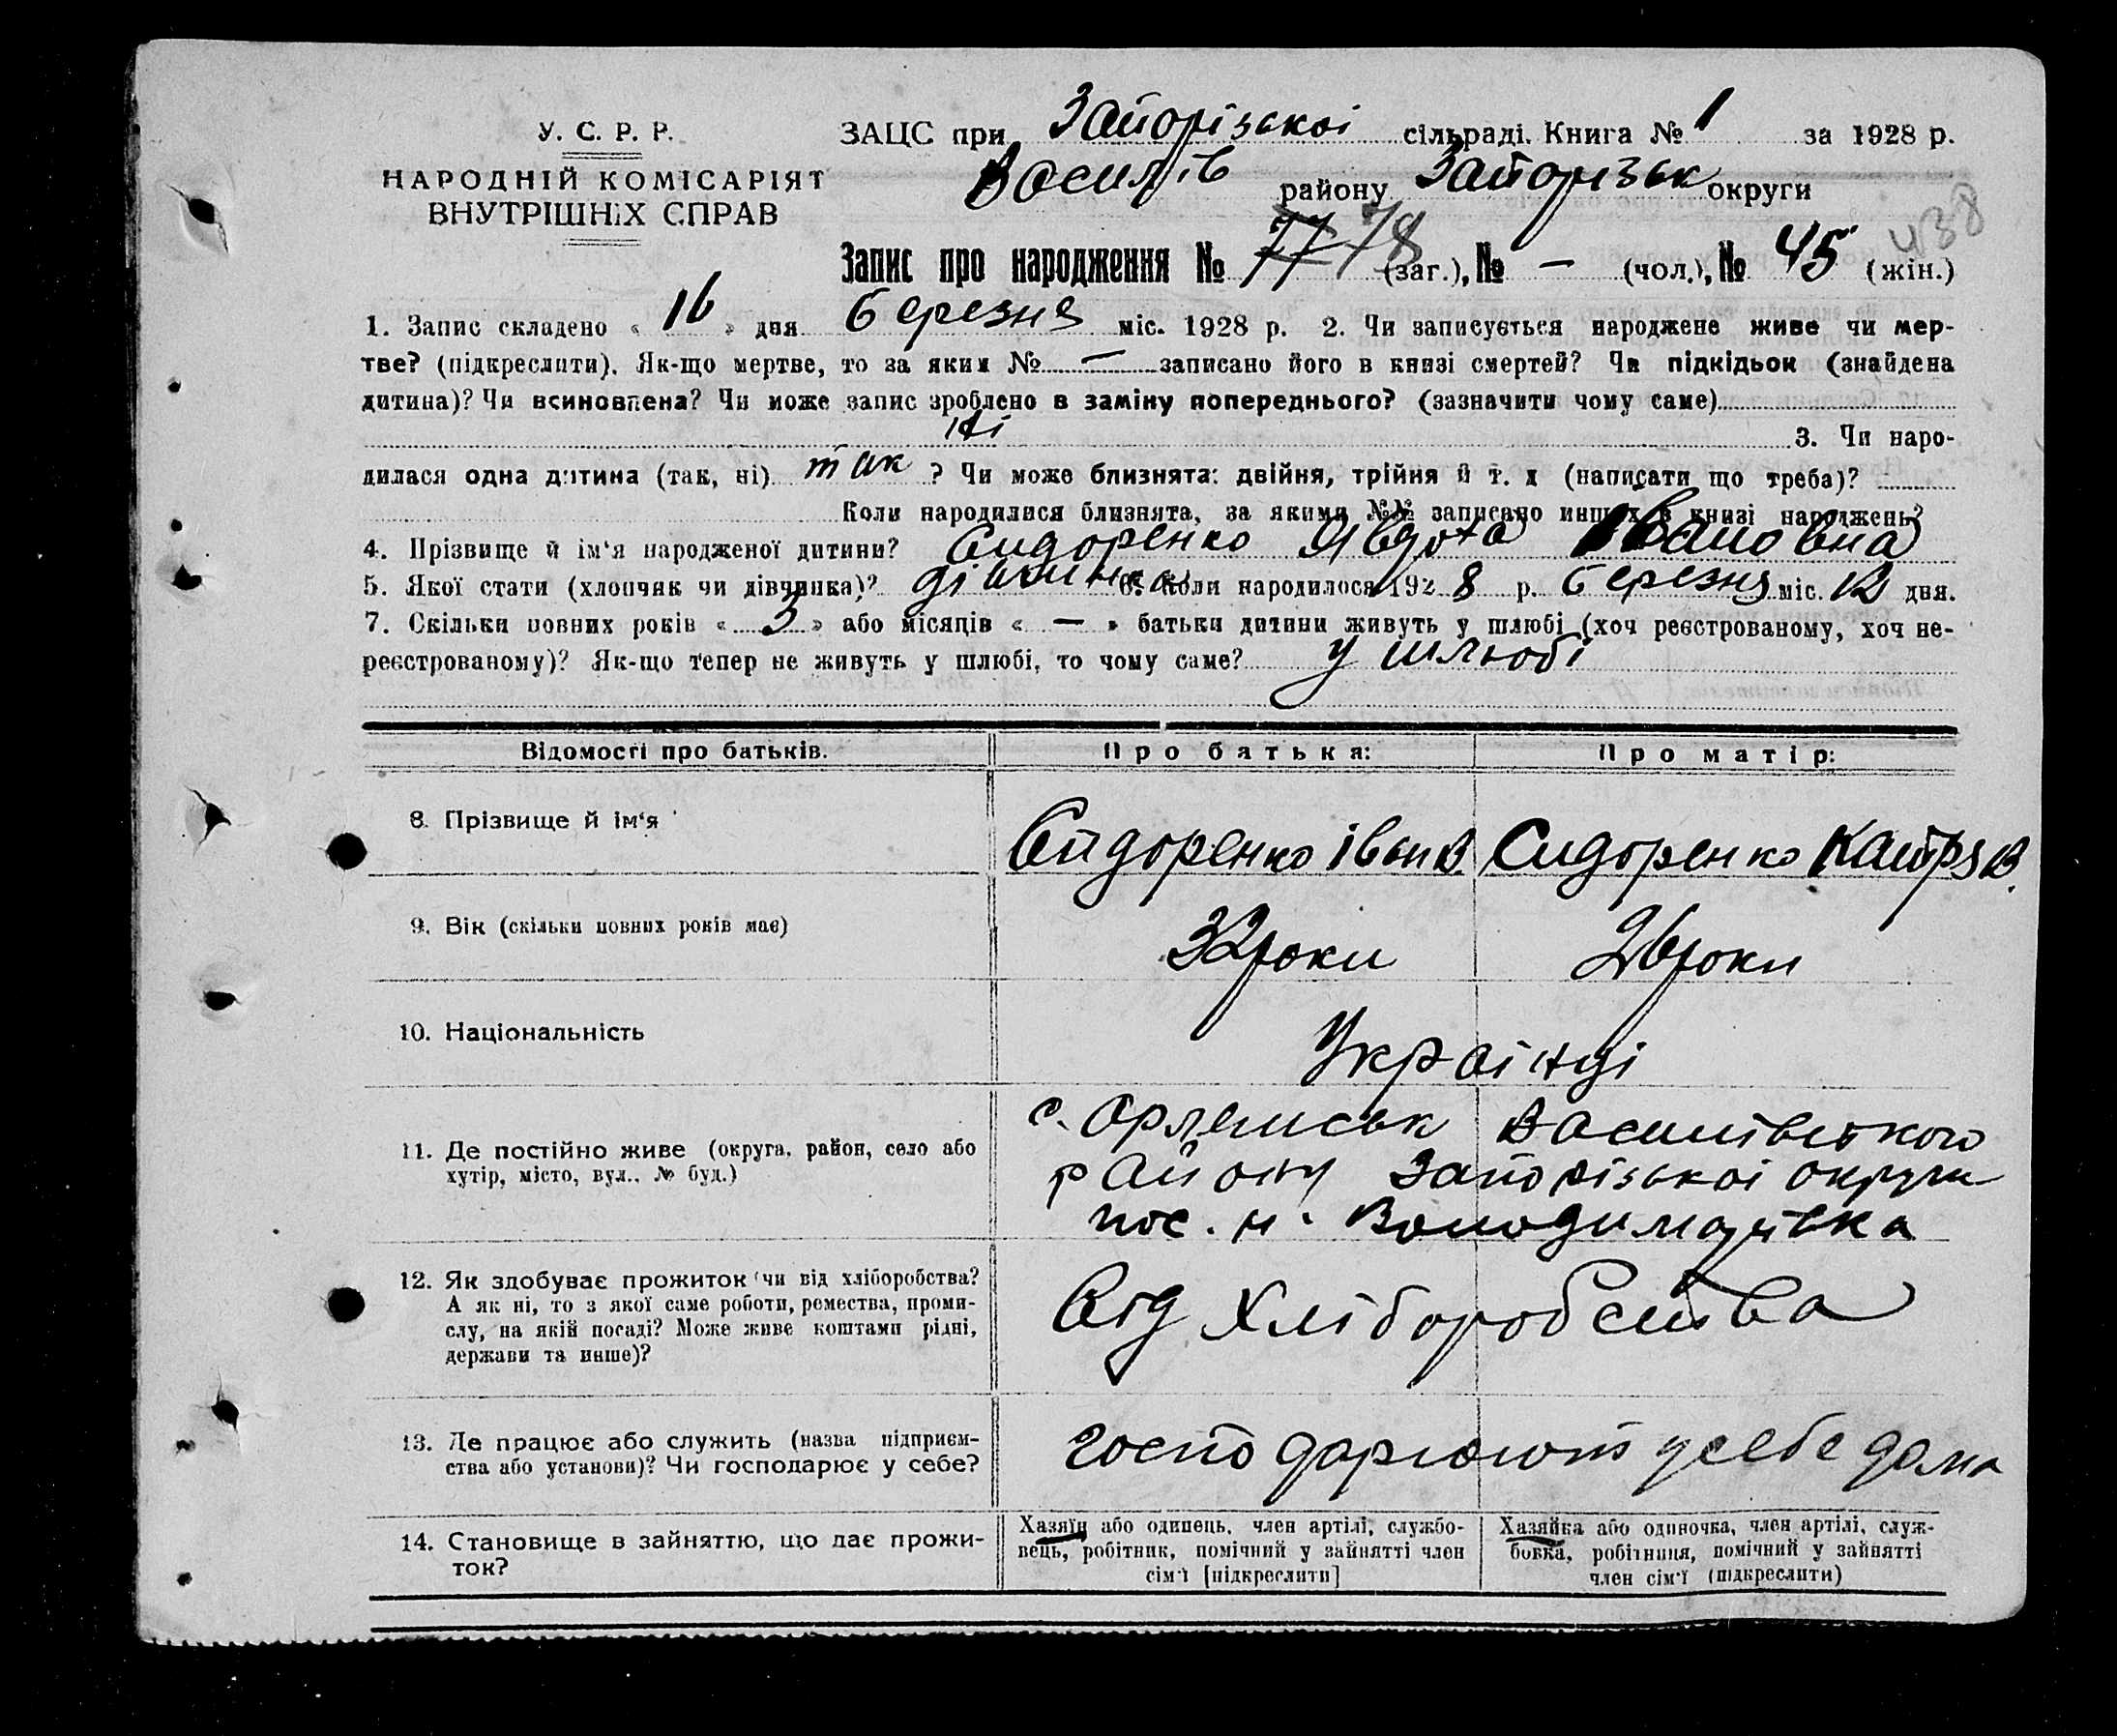 У. С. Р. Р.
НАРОДНІЙ КОМІСАРІЯТ
ВНУТРІШНІХ СПРАВ
ЗАЦС при Запорізькоі сільраді. Книга № 1 за 1928 р.
Василів району Запорізьк округи
438
Запис про народження № 77 78 (заг.), № — (чол.), № 45 (жін.)
1. Запис складено « 16 » дня березня міс. 1928 р. 2. Чи записується народжене живе чи мер-
тве? (підкреслити). Як-що мертве, то за яким № — записано його в книзі смертей? Чи підкідьок (знайдена
дитина)? Чи всиновлена? Чи може запис зроблено в заміну попереднього? (зазначити чому саме)
ні 3. Чи наро-
дилася одна дитина (так, ні) так ? Чи може близнята: двійня, трійня й т. д (написати що треба)?
Коли народилися близнята, за якими №№ записано инших в книзі народжень?
4. Прізвище й ім‘я народженої дитини? Сидоренко Явдота Івановна
5. Якої стати (хлопчик чи дівчинка)? дівчинка 6. Коли народилося 1928 р. березня міс. 12 дня.
7. Скільки повних років « 3 » або місяців « — » батьки дитини живуть у шлюбі (хоч реєстрованому, хоч не-
реєстрованому)? Як-що тепер не живуть у шлюбі, то чому саме? у шлюбі
Відомості про батьків. Про батька: Про матір:
8. Прізвище й ім‘я Сидоренко Іван В. Сидоренко Катря В.
9. Вік (скільки повних років має) 32 роки 26 роки
10. Національність Украінці
11. Де постійно живе (округа, район, село або
хутір, місто, вул., № буд.)
с. Орлянськ Василівського
району Запорізькоі округи
пос. н. Володимирівка
12. Як здобуває прожиток (чи від хліборобства?
А як ні, то з якої саме роботи, ремества, проми-
слу, на якій посаді? Може живе коштами рідні,
держави та инше)?
Від Хліборобства
13. Де працює або служить (назва підприєм-
ства або установи)? Чи господарює у себе?
господарюють у себе дома
14. Становище в зайняттю, що дає прожи-
ток?
Хазяїн або одинець, член артілі, службо-
вець, робітник, помічний у зайнятті член
сім‘ї [підкреслити]
Хазяйка або одиночка, член артілі, служ-
бовка, робітниця, помічний у зайнятті
член сім‘ї (підкреслити)